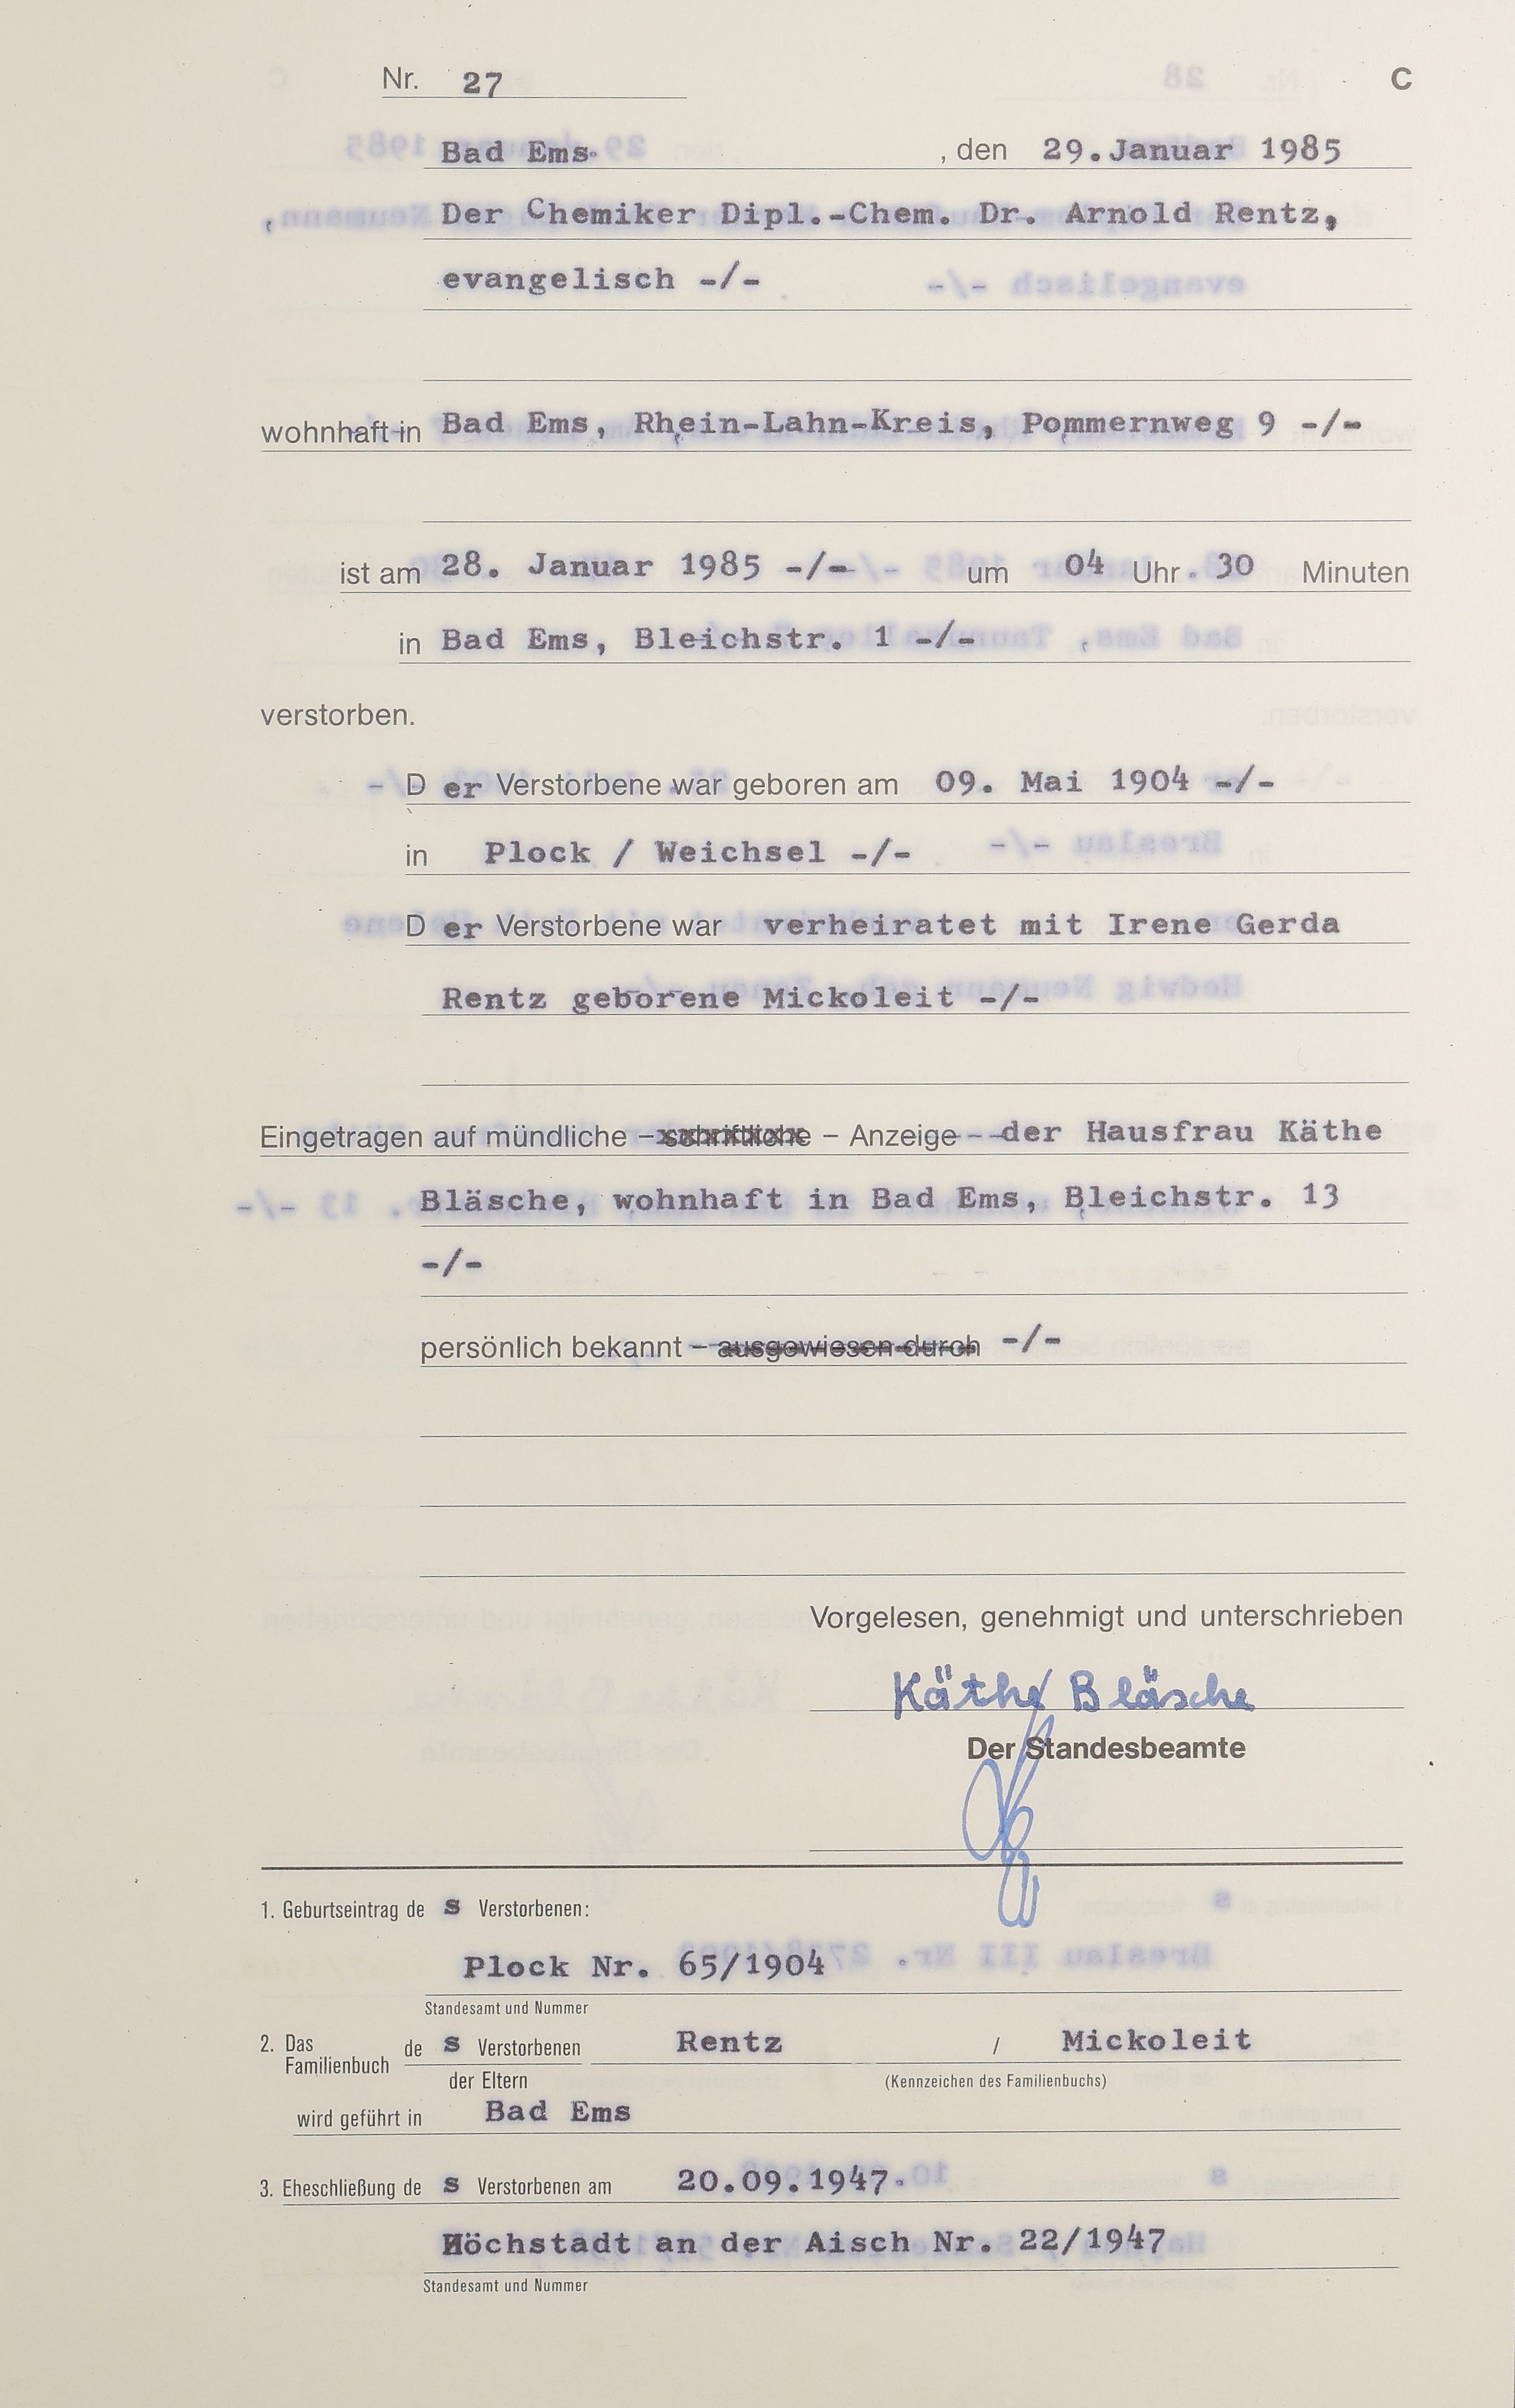 Nr. 27 C
Bad Ems , den 29.Januar 1985
Der Chemiker Dipl.-Chem. Dr. Arnold Rentz,
evangelisch -/-
wohnhaft in Bad Ems, Rhein-Lahn-Kreis, Pommernweg 9 -/-
ist am 28. Januar 1985 -/- um 04 Uhr 30 Minuten
in Bad Ems, Bleichstr. 1 -/-
verstorben.
D er Verstorbene war geboren am 09. Mai 1904 -/-
in Plock / Weichsel -/-
D er Verstorbene war verheiratet mit Irene Gerda
Rentz geborene Mickoleit -/-
Eingetragen auf mündliche – schriftliche – Anzeige der Hausfrau Käthe
Bläsche, wohnhaft in Bad Ems, Bleichstr. 13
-/-
persönlich bekannt – ausgewiesen durch -/-
Vorgelesen, genehmigt und unterschrieben
Käthe Bläsche
Der Standesbeamte
1. Geburtseintrag de s Verstorbenen:
Plock Nr. 65/1904
Standesamt und Nummer
2. Das Familienbuch de s Verstorbenen Rentz / Mickoleit
der Eltern (Kennzeichen des Familienbuchs)
wird geführt in Bad Ems
3. Eheschließung de s Verstorbenen am 20.09.1947
Höchstadt an der Aisch Nr. 22/1947
Standesamt und Nummer